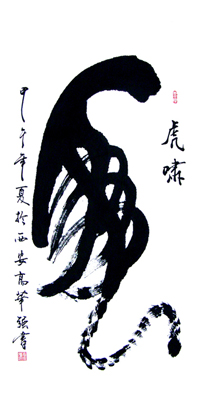 虎啸
甲午年夏於西安高華強書